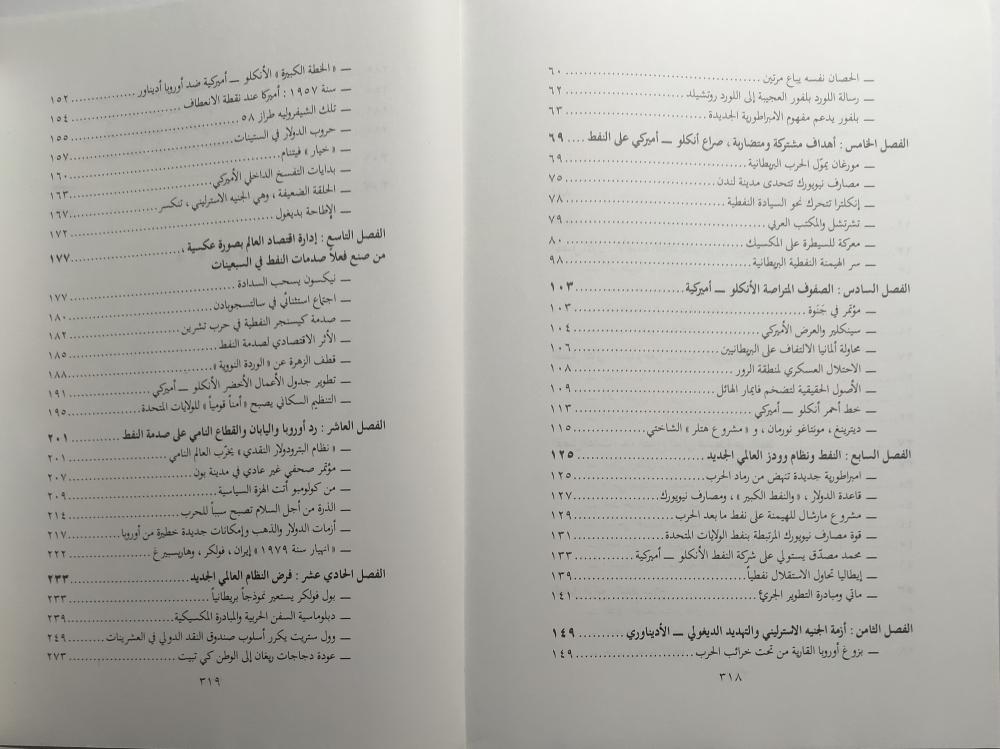 — الحصان نفسه يباع مرتين ................ ٦٠
— رسالة اللورد بلفور العجيبة إلى اللورد روتشيلد ................ ٦٢
— بلفور يدعم مفهوم الامبراطورية الجديدة ................ ٦٣
الفصل الخامس : أهداف مشتركة ومتضاربة ، صراع أنكلو — أميركي على النفط ..... ٦٩
— مورغان يموّل الحرب البريطانية ................ ٦٩
— مصارف نيويورك تتحدى مدينة لندن ................ ٧٥
— إنكلترا تتحرك نحو السيادة النفطية ................ ٧٨
— تشرتشل والمكتب العربي ................ ٧٩
— معركة للسيطرة على المكسيك ................ ٨٠
— سر الهيمنة النفطية البريطانية ................ ٩٨
الفصل السادس : الصفوف المتراصة الأنكلو — أميركية ................ ١٠٣
— مؤتمر في جَنَوة ................ ١٠٣
— سينكلير والعرض الأميركي ................ ١٠٤
— محاولة ألمانيا الالتفاف على البريطانيين ................ ١٠٦
— الاحتلال العسكري لمنطقة الرور ................ ١٠٨
— الأصول الحقيقية لتضخم فايمار الهائل ................ ١٠٩
— خط أحمر أنكلو — أميركي ................ ١١٣
— ديترينغ ، مونتاغو نورمان ، و « مشروع هتلر » الشاختي ................ ١١٥
الفصل السابع : النفط ونظام وودز العالمي الجديد ................ ١٢٥
— امبراطورية جديدة تنهض من رماد الحرب ................ ١٢٥
— قاعدة الدولار ، « والنفط الكبير » ، ومصارف نيويورك ................ ١٢٧
— مشروع مارشال للهيمنة على نفط ما بعد الحرب ................ ١٢٩
— قوة مصارف نيويورك المرتبطة بنفط الولايات المتحدة ................ ١٣١
— محمد مصدّق يستولي على شركة النفط الأنكلو — أميركية ................ ١٣٣
— إيطاليا تحاول الاستقلال نفطياً ................ ١٣٩
— ماتي ومبادرة التطوير الجريء ................ ١٤١
الفصل الثامن : أزمة الجنيه الاسترليني والتهديد الديغولي — الأديناوري .......... ١٤٩
— بزوغ أوروبا القارية من تحت خرائب الحرب ................ ١٤٩
٣١٨
— « الخطة الكبيرة » الأنكلو — أميركية ضد أوروبا أديناور ................ ١٥٢
— سنة ١٩٥٧ : أميركا عند نقطة الانعطاف ................ ١٥٤
— تلك الشيفروليه طراز ٥٨ ................ ١٥٥
— حروب الدولار في الستينات ................ ١٥٧
— « خيار » فيتنام ................ ١٦٠
— بدايات التفسخ الداخلي الأميركي ................ ١٦٣
— الحلقة الضعيفة ، وهي الجنيه الاسترليني ، تنكسر ................ ١٦٧
— الإطاحة بديغول ................ ١٧٢
الفصل التاسع : إدارة اقتصاد العالم بصورة عكسية ، ................ ١٧٧
من صنع فعلاً صدمات النفط في السبعينات
— نيكسون يسحب السدادة ................ ١٧٧
— اجتماع استثنائي في سالتسجوبادن ................ ١٨٠
— صدمة كيسنجر النفطية في حرب تشرين ................ ١٨٢
— الأثر الاقتصادي لصدمة النفط ................ ١٨٥
— قطف الزهرة عن « الوردة النووية » ................ ١٨٨
— تطوير جدول الأعمال الأخضر الأنكلو — أميركي ................ ١٩١
— التنظيم السكاني يصبح « أمناً قومياً » للولايات المتحدة ................ ١٩٥
الفصل العاشر : رد أوروبا واليابان والقطاع النامي على صدمة النفط ............ ٢٠١
— « نظام البترودولار النقدي » يخرّب العالم النامي ................ ٢٠١
— مؤتمر صحفي غير عادي في مدينة بون ................ ٢٠٧
— من كولومبو أتت الهزة السياسية ................ ٢٠٩
— الذرة من أجل السلام تصبح سبباً للحرب ................ ٢١٤
— أزمات الدولار والذهب وإمكانات جديدة خطيرة من أوروبا ............ ٢١٧
— « انهيار سنة ١٩٧٩ » إيران ، فولكر ، وهاريسبيرغ ................ ٢٢٢
الفصل الحادي عشر : فرض النظام العالمي الجديد ................ ٢٣٣
— بول فولكر يستعير نموذجاً بريطانياً ................ ٢٣٣
— دبلوماسية السفن الحربية والمبادرة المكسيكية ................ ٢٣٩
— وول ستريت يكرر أسلوب صندوق النقد الدولي في العشرينات .......... ٢٤٩
— عودة دجاجات ريغان إلى الوطن كي تبيت ................ ٢٧٣
٣١٩